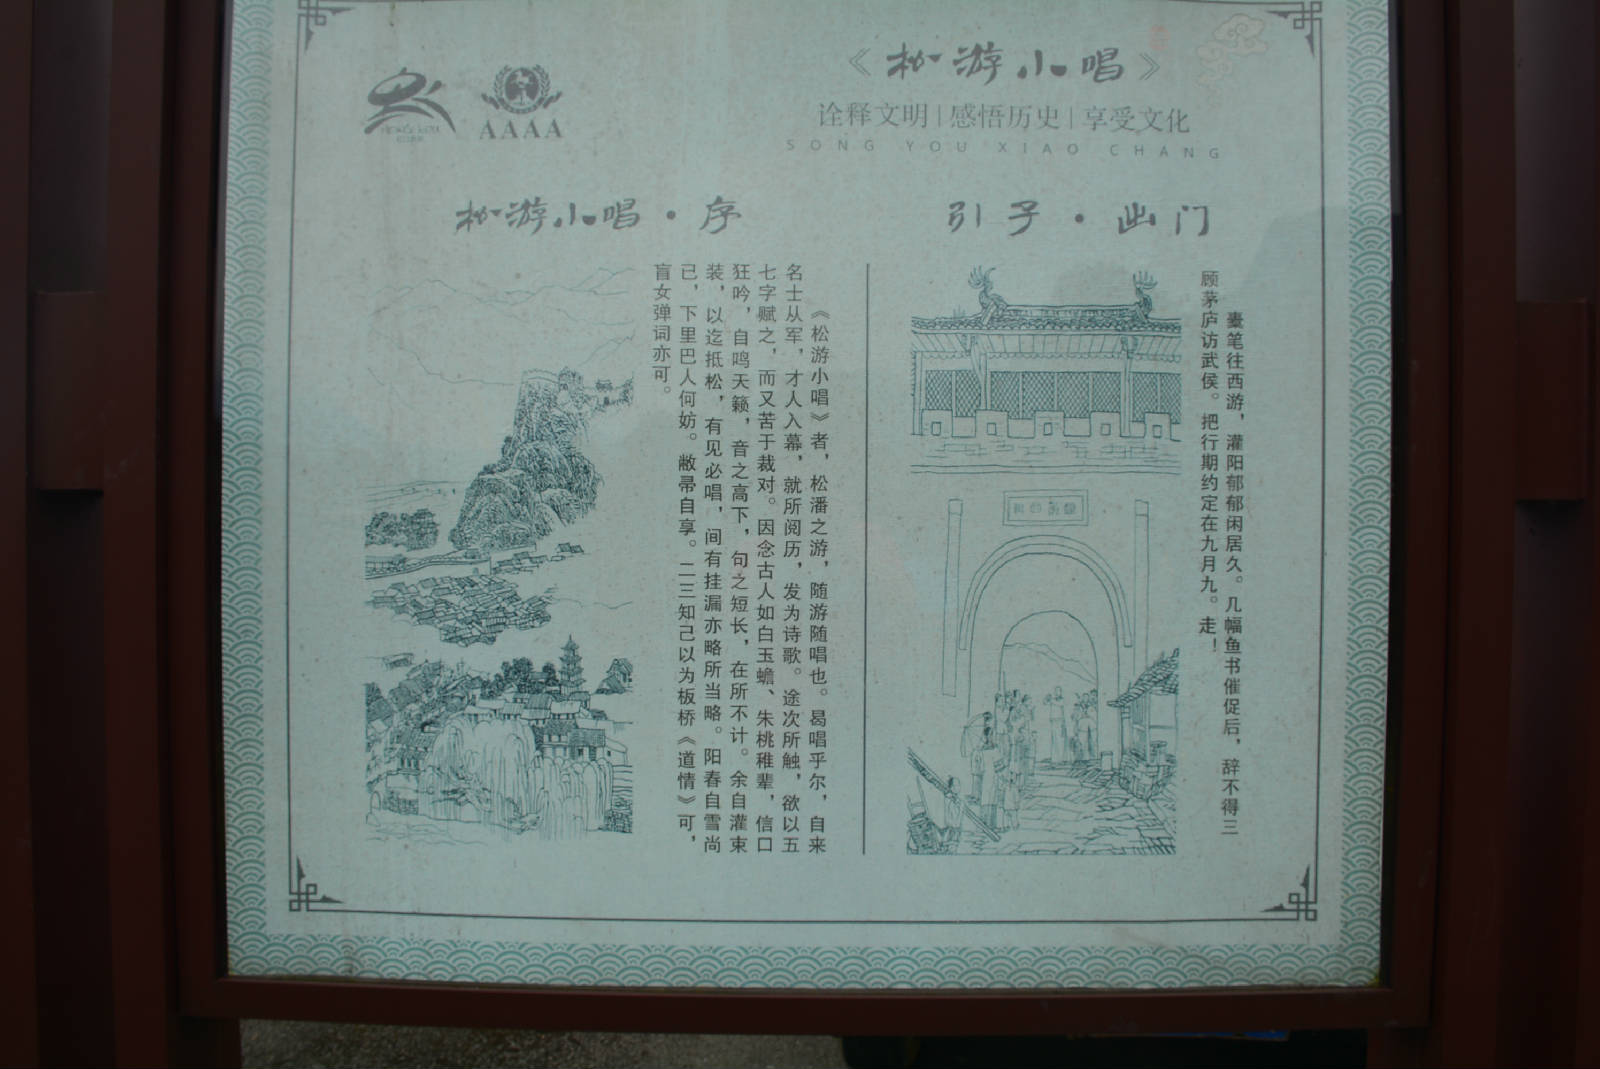 《松游小唱》
诠释文明|感悟历史|享受文化
SONG YOU XIAO CHANG
AAAA
引子·出门
橐笔往西游，灌阳郁郁闲居久。几幅鱼书催促后，辞不得三
顾茅庐访武侯。把行期约定在九月九。走！
松游小唱·序
《松游小唱》者，松潘之游，随游随唱也。曷唱乎尔，自来
名士从军，才人入幕，就所阅历，发为诗歌。途次所触，欲以五
七字赋之，而又苦于裁对。因念古人如白玉蟾、朱桃稚辈，信口
狂吟，自鸣天籁，音之高下，句之短长，在所不计。余自灌束
装，以迄抵松，有见必唱，间有挂漏亦略所当略。阳春自雪尚
已，下里巴人何妨。敝帚自享。二三知己以为板桥《道情》可，
盲女弹词亦可。